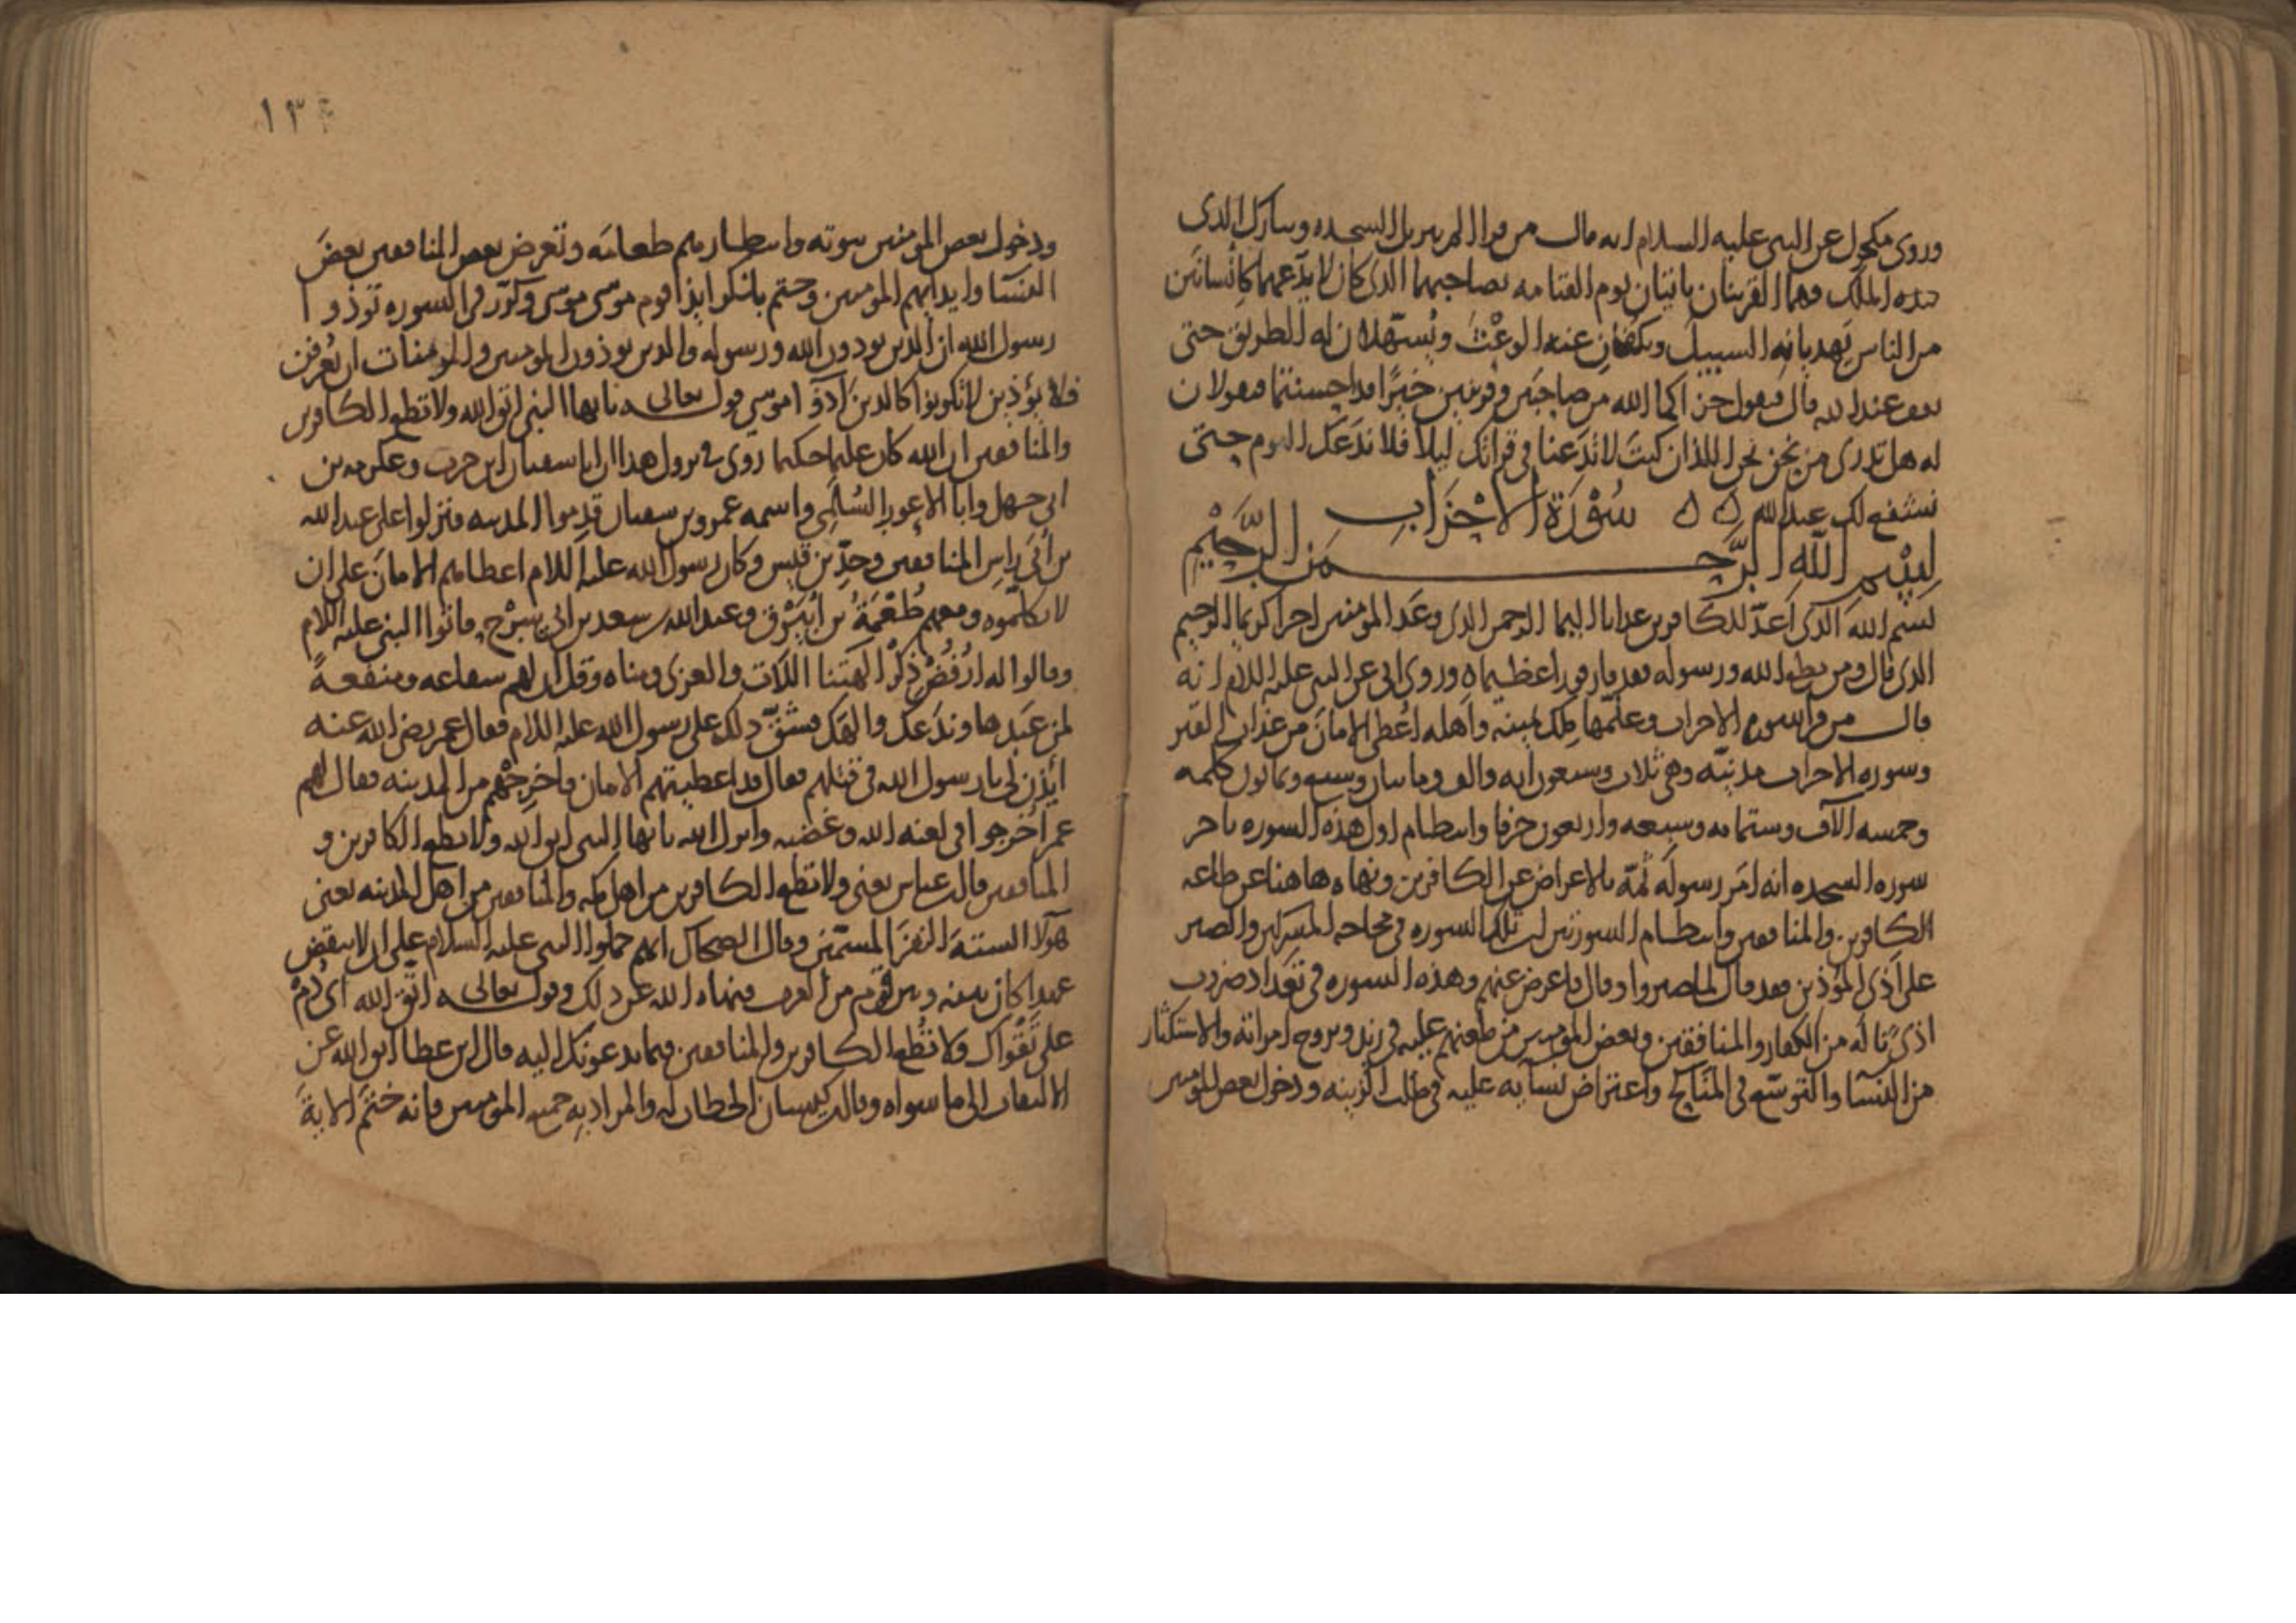 وروى مكحول عن النبي عليه السلام انه قال من قرا الم تنزيل السجده وتبارك الذى
بيده الملك وهما القرينان ياتيان يوم القيامه بصاحبهما الذى كان لا يدعهما كانسانين
من الناس يهديانه السبيل ويكفان عنه الوعث ويسهلان له الطريق حتى
يقف عند الله قال فيقول جزاكما الله من صاحبين وقرينين خيرا قد احسنتما فيقولان
له هل تدرى من نحن نحن اللذان كنت لا تدعنا في قراتك ليلا فلا ندعك اليوم حتى
نشفع لك عند الله ٥ ٥ سورة الاحزاب
بسم الله الرحمن الرحيم
بسم الله الذى اعد للكافرين عذابا اليما الرحمن الذى وعد المومنين اجرا كريما الرحيم
الذى قال ومن يطع الله ورسوله فقد فاز فوزا عظيما ٥ وروى ابى عن النبى عليه السلام انه
قال من قرا سورة الاحزاب وعلمها ملك يمينه واهله اعطى الامان من عذاب القبر
وسوره الاحزاب مدنيه وهى ثلاث وسبعون ايه والف ومائتان وسبعه وثمانون كلمه
وخمسه الآف وستمائه وسبعه واربعون حرفا وانتظام اول هذه السوره باخر
سوره السجده انه امر رسوله ثمه بالاعراض عن الكافرين ونهاه هاهنا عن طاعه
الكافرين والمنافقين وانتظام السورتين ان تلك السوره في محاجه المشركين والصبر
على اذى المؤذين فقد قال لما صبروا وقال فاعرض عنهم وهذه السوره في تعداد ضروب
اذى ناله من الكفار والمنافقين وبعض المومنين من طعنهم عليه في زيد وتزوج امراته والاستكثار
من النسا والتوسع في المناكح واعتراض نسآيه عليه في طلب الزينه ودخول بعض المومنين
ودخول بعض المومنين بيوته وانتظارهم طعامه وتعرض بعض المنافقين بعض
النسا وايذايهم المومنين وختم بانكم ايذا قوم موسى موسى وكرر في السوره تؤذوا
رسول الله ان الذين يوذون الله ورسوله والذين يوذون المومنين والمومنات ان يعرفن
فلا يؤذين لا تكونوا كالذين آذوا موسى قوله تعالى يايها النبى اتق الله ولا تطع الكافرين
والمنافقين ان الله كان عليما حكيما روى في نزول هذا ان ابا سفيان ابن حرب وعكرمه بن
ابى جهل وابا الاعور السلمى واسمه عمرو بن سفيان قدموا المدينه فنزلوا على عبد الله
بن أبى راس المنافقين وجد بن قيس وكان رسول الله عليه السلام اعطاهم الامان على ان
لا يكلموه ومعهم طعمة بن ابيرق وعبد الله بن سعد بن ابى سرح فاتوا النبى عليه السلام
وقالوا له ارفض ذكر الهتنا اللات والعزى ومناه وقل ان لهم شفاعه ومنفعة
لمن عبدها وندعك والهك فشق ذلك على رسول الله عليه السلام فقال عمر رضى الله عنه
ايذن لى يا رسول الله في قتلهم فقال قد اعطيتهم الامان فاخرجهم من المدينه فقال لهم
عمر اخرجوا في لعنه الله وغضبه وانزل الله يايها النبى اتق الله ولا تطع الكافرين و
المنافقين قال عباس يعنى ولا تطع الكافرين من اهل مكه والمنافقين من اهل المدينه يعنى
هولا الستة النفر المسمين وقال الضحاك انهم حملوا النبى عليه السلام على ان لا ينقض
عهدا كان بينه وبين قوم من العرب فنهاه الله عن ذلك وقوله تعالى اتق الله اى دم
على تقواك ولا تطع الكافرين والمنافقين فيما يدعونك اليه قال ابن عطا اتق الله عن
الالتفات الى ما سواه وقال كيسان الخطاب له والمراد به جميع المومنين فانه ختم الاية